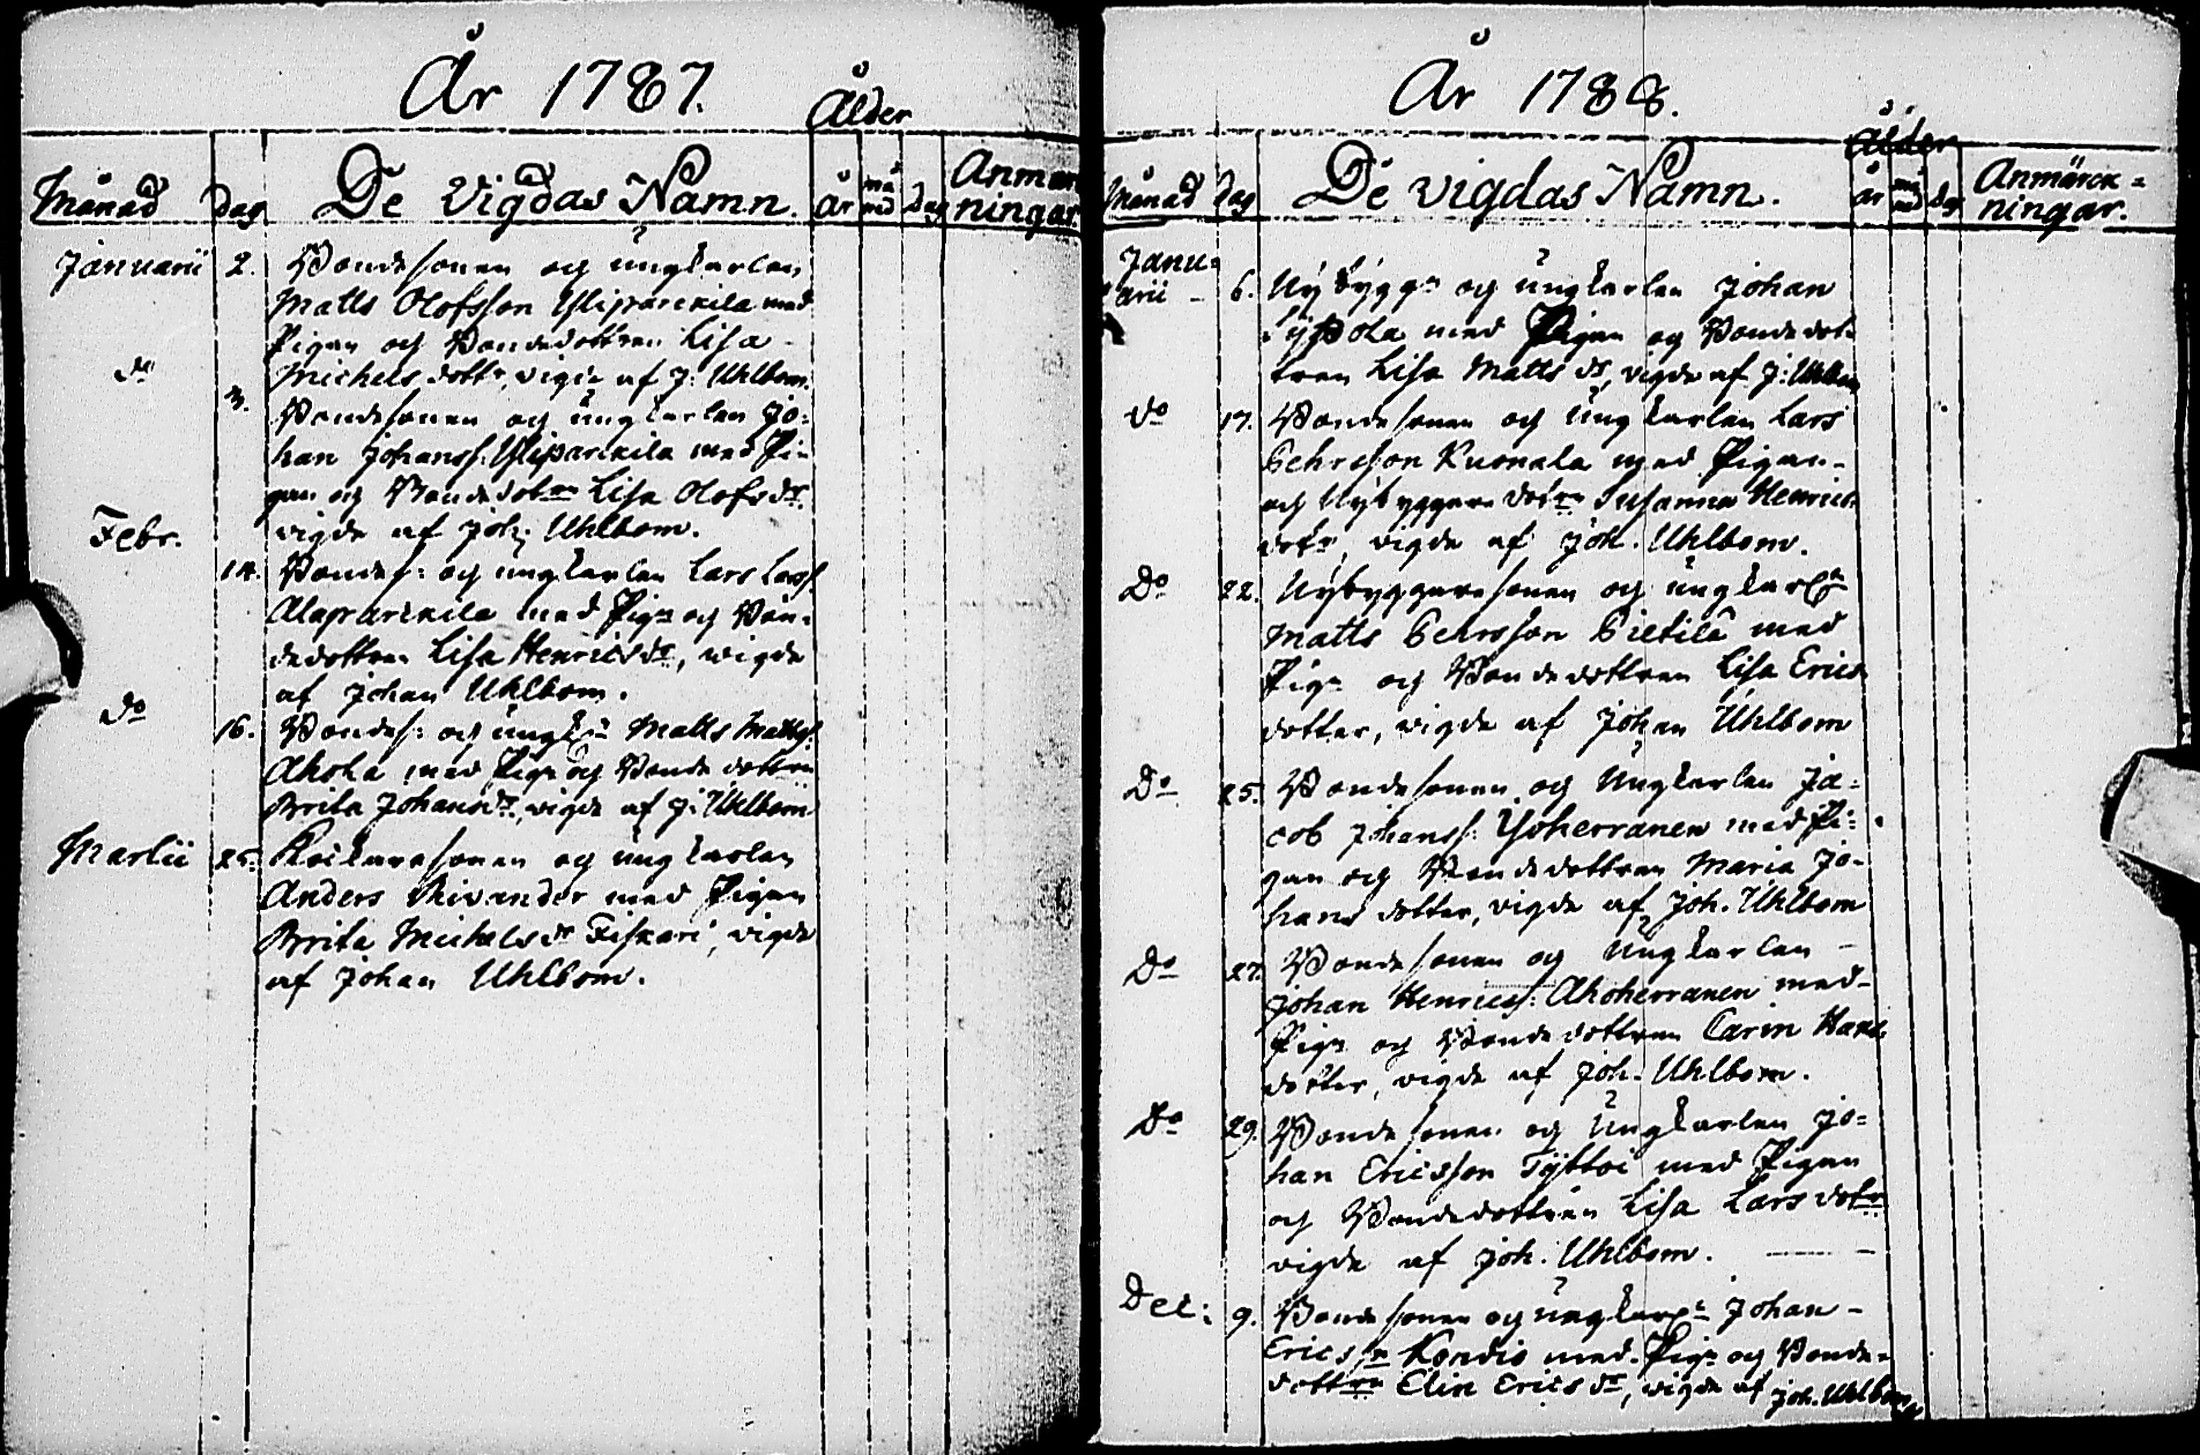 År 1787.
Ålder
Månad Dag De Vigdas Namn. år må nad Dag Anmärkningar
Januarii 2. Bondesonen og ungkarlen
Matts Olofsson Yliparckila med
Pigan og Bondedottren Lisa
Michels dottr, vigde af J: Uhlbom.
do 3. Bondesonen og ungkarlen Jo=
han Johanss: Yliparckila med Pi=
gan og Bondedotrn Lisa Olofsdr
vigde af Joh: Uhlbom.
Febr. 14. Bondes: og ungkarlen Lars Larss.
Alaparckila med Pign og Bon=
dedottren Lisa Henricsdr, vigde
af Johan Uhlbom.
do 16. Bondes: og ungkn Matts Matts:
Ahola med Pign og Bonde dottren
Brita Johansdr, vigde af J: Uhlbom
Martii 25. sonen og ungkarlen
Anders med Pigan
Brita Michelsdr Fiskari, vigde
af Johan Uhlbom.
År 1788.
Ålder
Månad Dag De vigdas Namn. år må nad Dag Anmärck=
ningar.
Janu=
arii - 6. Nybyggn og ungkarlen Johan
med Pigan og Bondedot=
tren Lisa Matts dr, vigde af J: Uhlbom
do 17. Bondesonen og Ungkarlen Lars
Pehrsson Kuonala med Pigan-
og Nybyggare dotrn Susanna Henrics
dotr, vigde af Joh. Uhlbom.
Do 22. Nybyggaresonen og ungkarln
Matts Pehrsson Pietilä med
Pign og Bondedottren Lisa Erics
dotter, vigde af Johan Uhlbom
Do 25. Bondesonen og Ungkarlen Ja=
cob Johanss: Yoherranen med Pi=
gan og Bondedottren Maria Jo=
hans dotter, vigde af Joh. Uhlbom
Do 27. Bondesonen og Ungkarlen -
Johan Henricss: Ahoherranen med-
Pign og Bondedottren Carin Hans
dotter, vigde af Joh. Uhlbom.
Do 29. Bondesonen og Ungkarlen Jo=
han Ericsson Tyttoi med Pigan
og Bondedottren Lisa Lars dotr
vigde af Joh. Uhlbom.
Dec: 9. Bondesonen og ungkarln Johan -
Ericssn Kondio med Pign og Bonde=
dottrn Elin Erics dr, vigde af Joh. Uhlbom